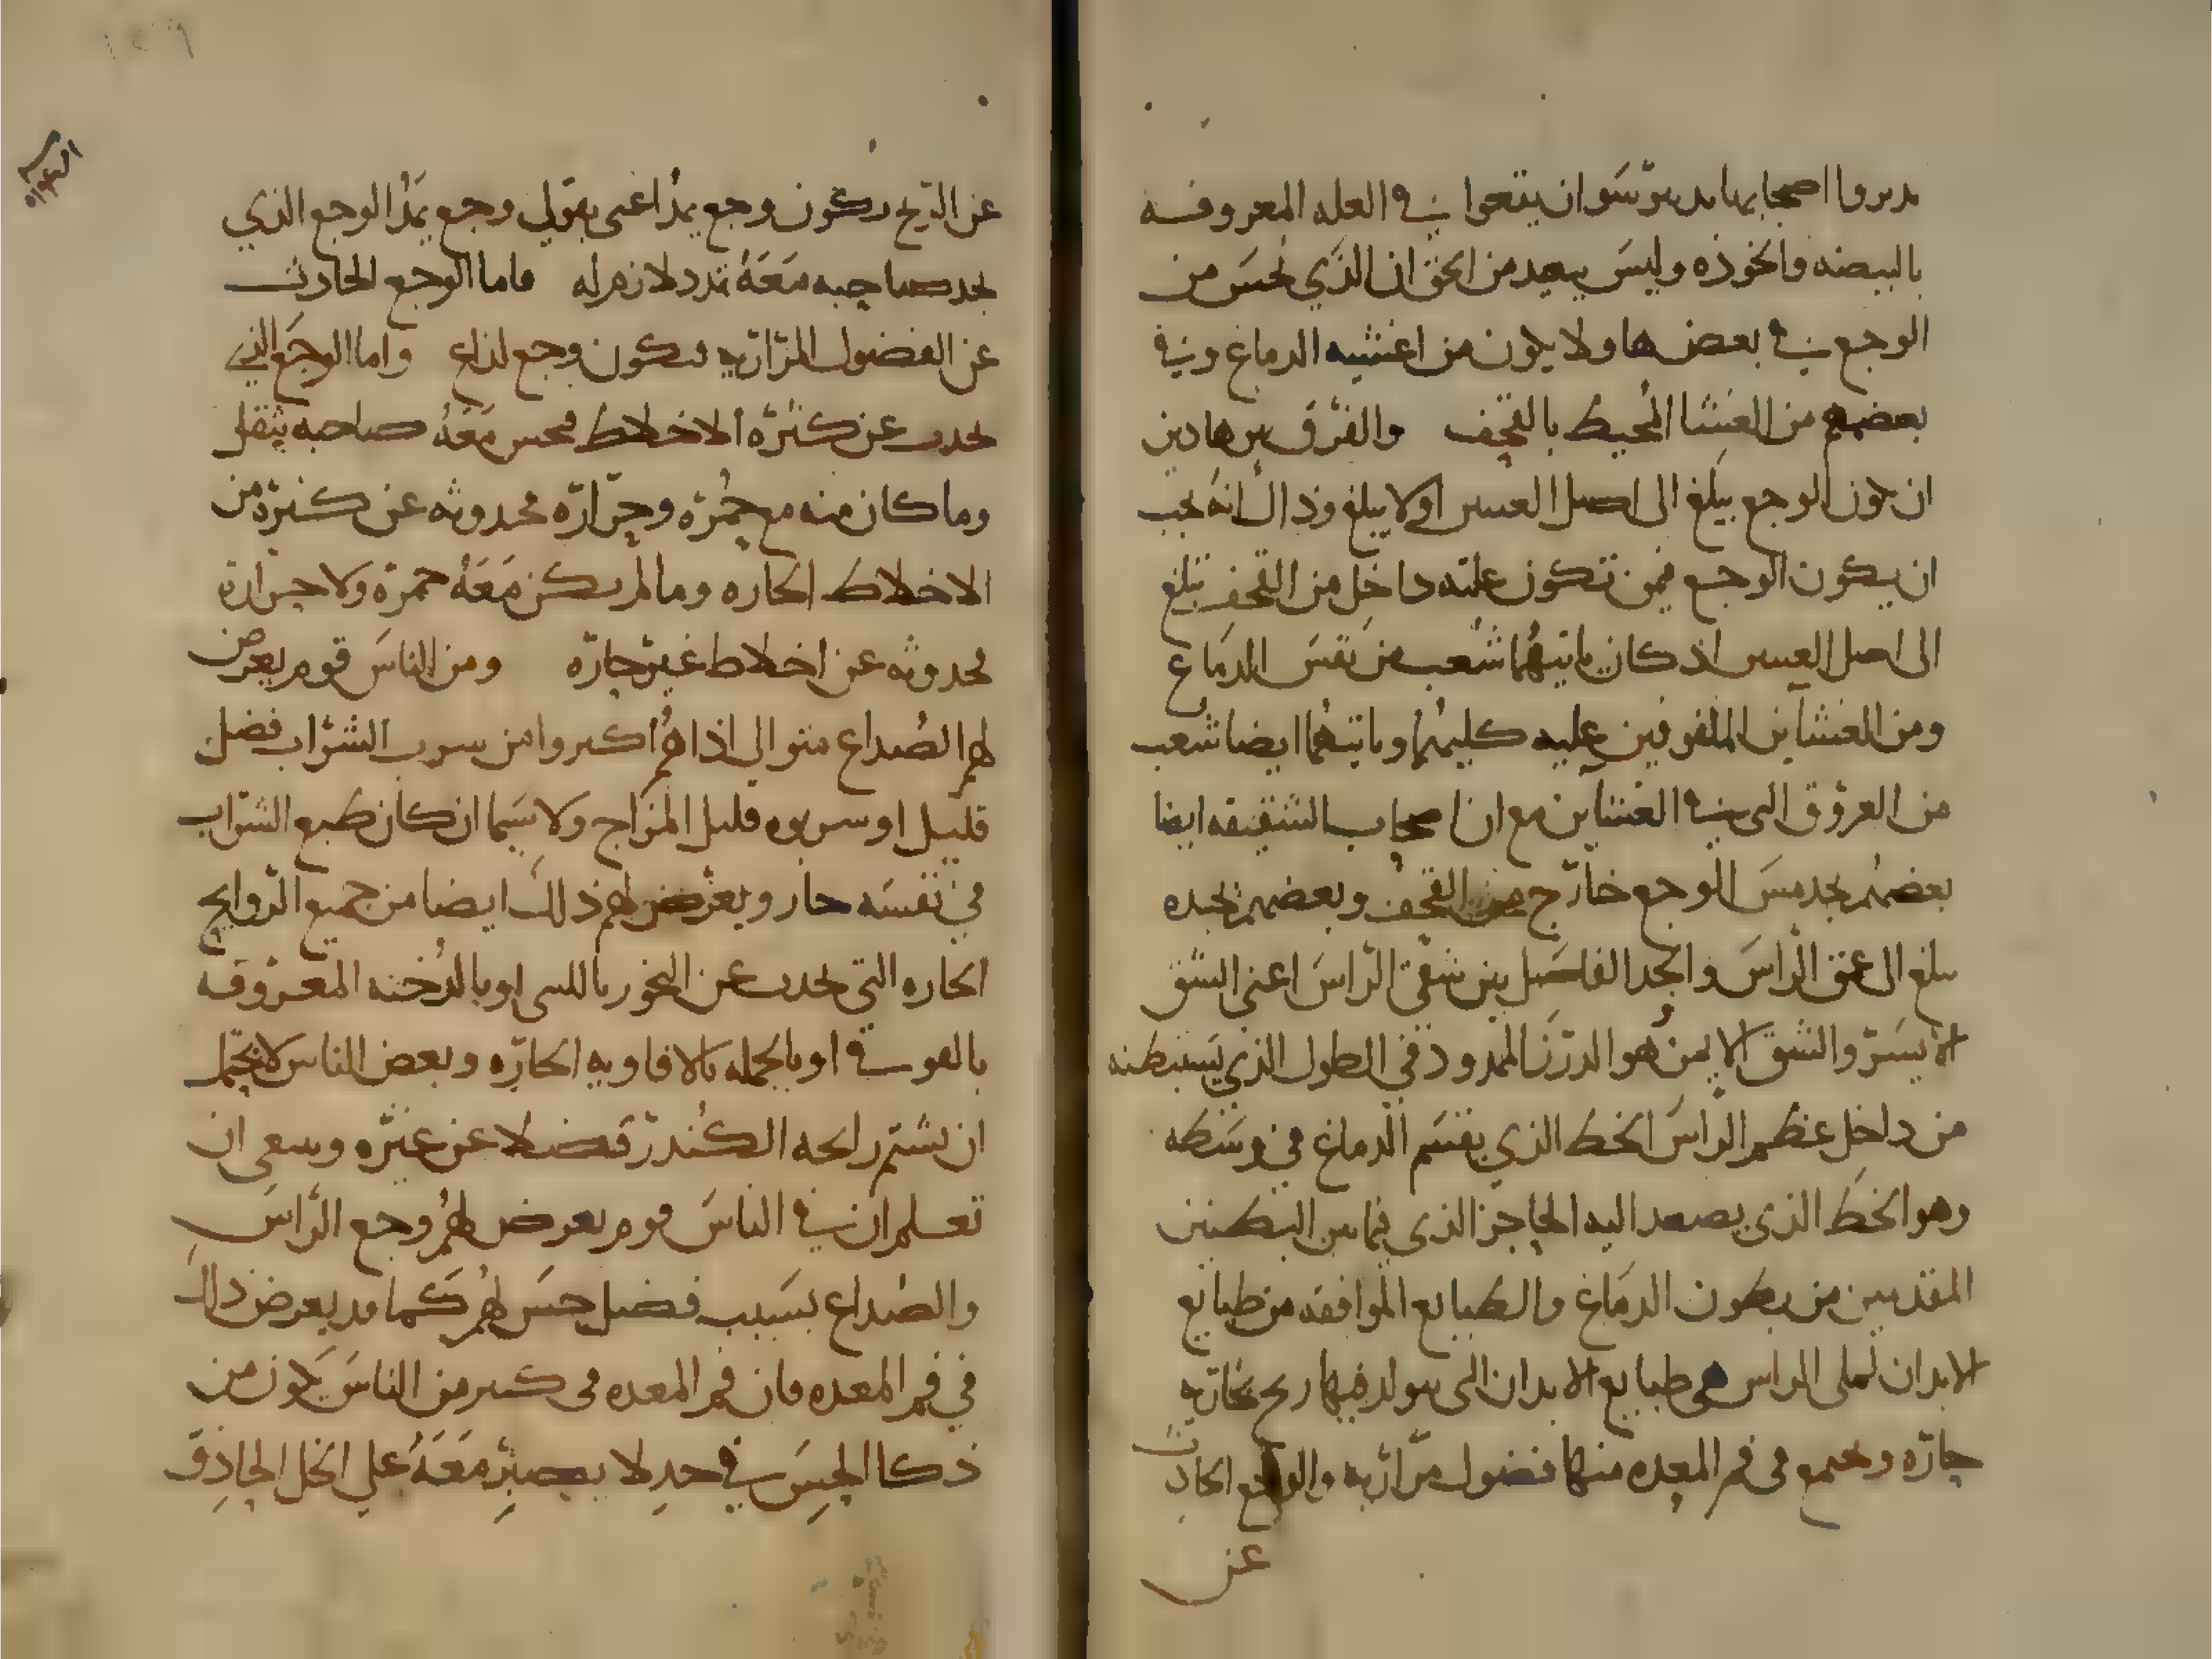 يدبروا اصحابها بدير يوسوان ينتفعوا في العله المعروفه
بالبيضه والخوذه وليس ببعيد من الحق ان الذي يحس من
الوجع في بعضها ولا يكون من اغشيه الدماغ وفي
بعضهم من الغشا المحيط بالقحف والفرق بين هاذين
ان يكون الوجع يبلغ الى اصل العينين او لا يبلغ وذالك انه يجب
ان يكون الوجع فيمن تكون علته داخل من القحف تبلغ
الى اصل العينين اذ كان ياتيهما شعب من نفس الدماغ
ومن الغشاين الملفوفين عليه كليهما وياتيهما ايضا شعب
من العروق التي في الغشاين مع ان اصحاب الشقيقه ايضا
بعضهم يجد مس الوجع خارج من القحف وبعضهم يجده
يبلغ الى عمق الراس والحد الفاصل بين شقي الراس اعني الشق
الايسر والشق الايمن هو الدرز الممدود في الطول الذي يستبطنه
من داخل عظم الراس الخط الذي يقسم الدماغ في وسطه
وهو الخط الذي يصعد اليه الحاجز الذي فيما بين البطنين
المقدمين من بطون الدماغ والطبايع الموافقه من طبايع
الابدان لملى الراس هي طبايع الابدان التي يتولد فيها ريح بخاريه
حاره ويجتمع في فم المعده منها فضول مراريه والوجع الحادث
عن
عن الريح يكون وجع يمدد اعني بقولي وجع يمدد الوجع الذي
يجد صاحبه معه تمدد لازم له فاما الوجع الحادث
عن الفضول المراريه فيكون وجع لذاع واما الوجع الذي
يحدث عن كثره الاخلاط فيحس معه صاحبه بثقل
وما كان منه مع حمره وحراره فحدوثه عن كثره من
الاخلاط الحاره وما لم يكن معه حمره ولا حراره
فحدوثه عن اخلاط غير حاره ومن الناس قوم يعرض
لهم الصداع متوالي اذا هم اكثروا من شرب الشراب فضل
قليل او شربوه قليل المزاج ولا سيما ان كان طبع الشراب
في نفسه حار ويعرض لهم ذلك ايضا من جميع الروايح
الحاره التي تحدث عن البخور باللبنى او بالدخنه المعروفه
بالقوفي او بالجمله بالافاويه الحاره وبعض الناس لا يحتمل
ان يشتم رايحه الكندر فضلا عن غيره وينبغي ان
تعلم ان في الناس قوم يعرض لهم وجع الراس
والصداع بسبب فضل حس لهم كما قد يعرض ذالك
في فم المعده فان فم المعده في كثير من الناس يكون من
ذكا الحس في حد لا يصبر معه على الخل الحاذق